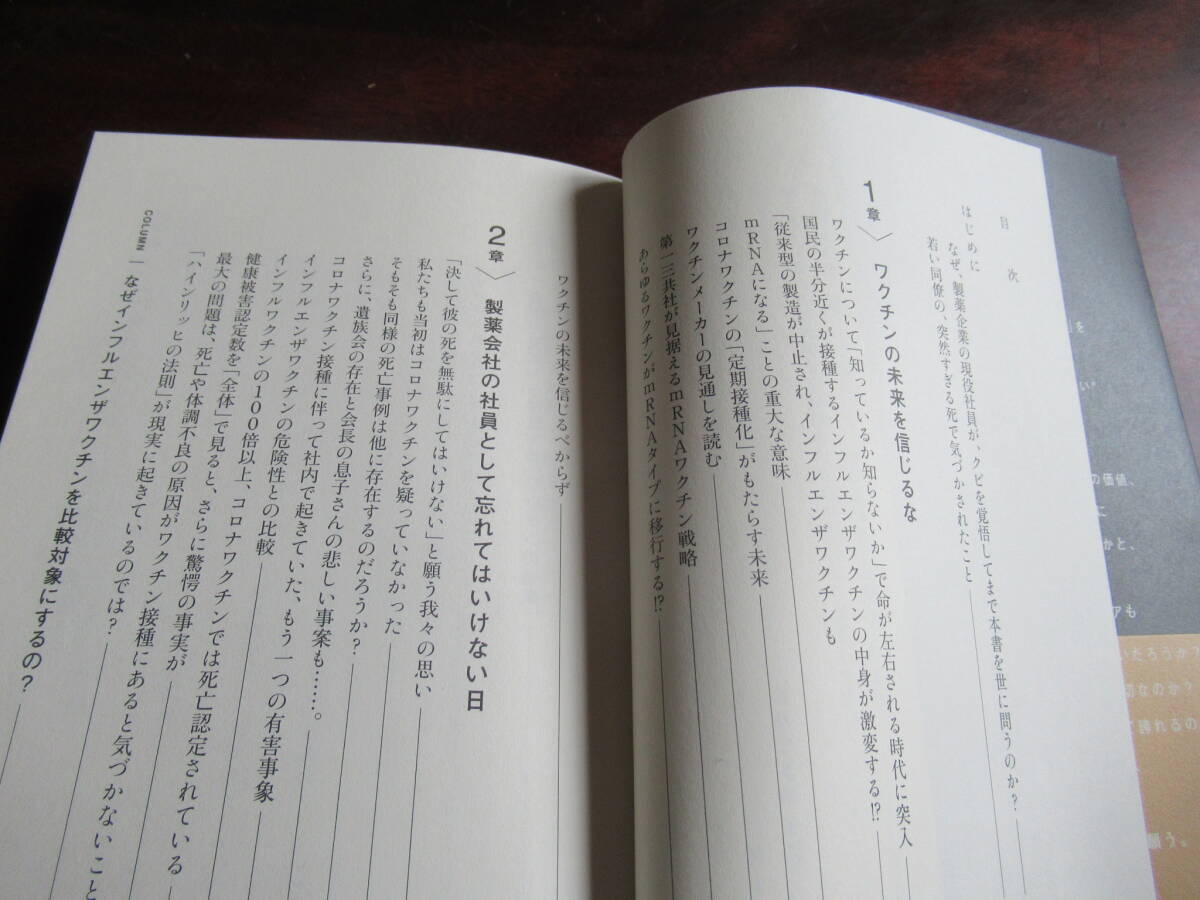 目次
はじめに
なぜ、製薬企業の現役社員が、クビを覚悟してまで本書を世に問うのか?
若い同僚の、突然すぎる死で気づかされたこと
1章〉 ワクチンの未来を信じるな
ワクチンについて「知っているか知らないか」で命が左右される時代に突入
国民の半分近くが接種するインフルエンザワクチンの中身が激変する!?
「従来型の製造が中止され、インフルエンザワクチンも
mRNAになる」ことの重大な意味
コロナワクチンの「定期接種化」がもたらす未来
ワクチンメーカーの見通しを読む
第一三共社が見据えるmRNAワクチン戦略
あらゆるワクチンがmRNAタイプに移行する!?
ワクチンの未来を信じるべからず
2章〉 製薬会社の社員として忘れてはいけない日
「決して彼の死を無駄にしてはいけない」と願う我々の思い
私たちも当初はコロナワクチンを疑っていなかった
そもそも同様の死亡事例は他に存在するのだろうか?
さらに、遺族会の存在と会長の息子さんの悲しい事案も……。
コロナワクチン接種に伴って社内で起きていた、もう一つの有害事象
インフルエンザワクチンの危険性との比較
インフルワクチンの100倍以上、コロナワクチンでは死亡認定されている
健康被害認定数を「全体」で見ると、さらに驚愕の事実が
最大の問題は、死亡や体調不良の原因がワクチン接種にあると気づかないこと
「ハインリッヒの法則」が現実に起きているのでは?
COLUMN なぜインフルエンザワクチンを比較対象にするの?
を
い
の価値、
に
かと、
アも
いだろうか?
切なのか?
て誇れるの
願う。